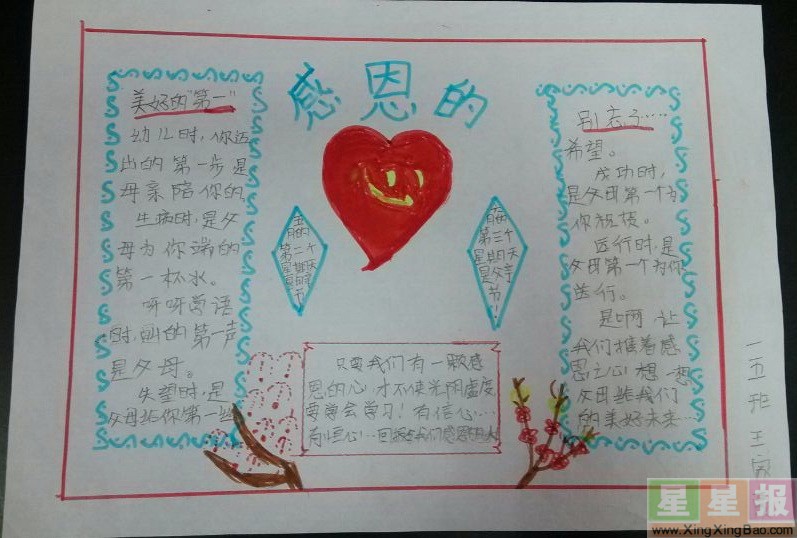 感恩的
美好的"第一"
幼儿时，你迈
出的第一步是
母亲陪你的
生病时，是父
母为你端的
第一杯水。
呀呀学语
时，叫的第一声
是父母。
失望时，是
父母给你第一丝
五月的
第二个
星期天
母亲
节
六月的
第三个
星期天
是父亲
节！
别忘了……
希望。
成功时，
是父母第一个为
你祝贺。
远行时，是
父母第一个为你
送行。
是啊，让
我们揣着感
恩之心想一想
父母给我们
的美好未来…
只要我们有一颗感
恩的心，才不使光阴虚度
要学会学习！有信心…
有恒心…回报我们感恩的人
一五班 王
星星报
www.XingXingBao.com